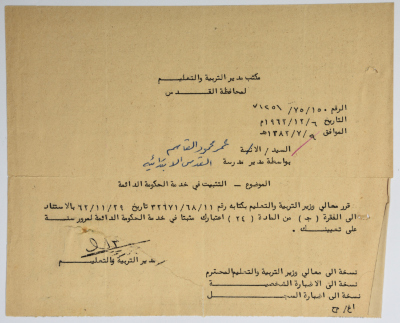 مكتب مدير التربية والتعليم
لمحافظة القدس
الرقم ٧٥/١٥٠/
التاريخ ١٩٦٢/١٢/٦م
الموافق ١٣٨٢/٧/٩هـ
السيد / الآنسة عمر محمود القاسم
بواسطة مدير مدرسة القدس الابتدائية
الموضوع - التثبيت في خدمة الحكومة الدائمة
قرر معالي وزير التربية والتعليم بكتابه رقم ٣٢٦٧١/٦٨/١١ تاريخ ٦٢/١١/٢٩ بالاستناد
الى الفقرة (جـ) من المادة (٢٤) اعتبارك مثبتا في خدمة الحكومة الدائمة لمرور سنة
على تعيينك .
مدير التربية والتعليم
نسخة الى معالي وزير التربية والتعليم المحترم
نسخة الى الاضبارة الشخصية
نسخة الى اضبارة السجل